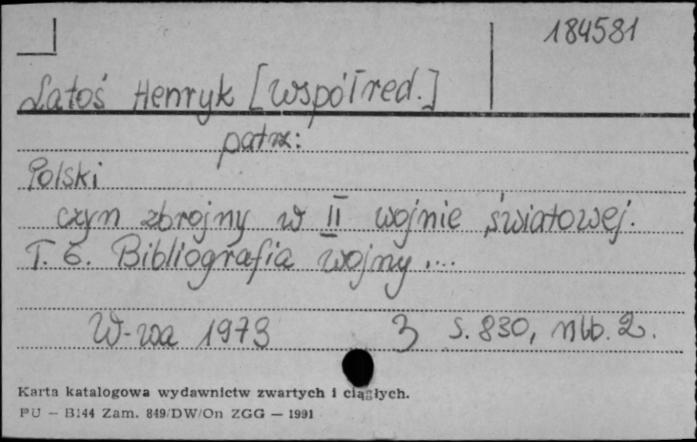 184581
Latoś Henryk [współred.]
patrz:
Polski
czyn zbrojny w II wojnie światowej.
T. 6. Bibliografia wojny....
W-wa 1973 3 s. 830, nlb. 2.
Karta katalogowa wydawnictw zwartych i ciągłych.
PU - B144 Zam. 849/DW/On ZGG - 1991